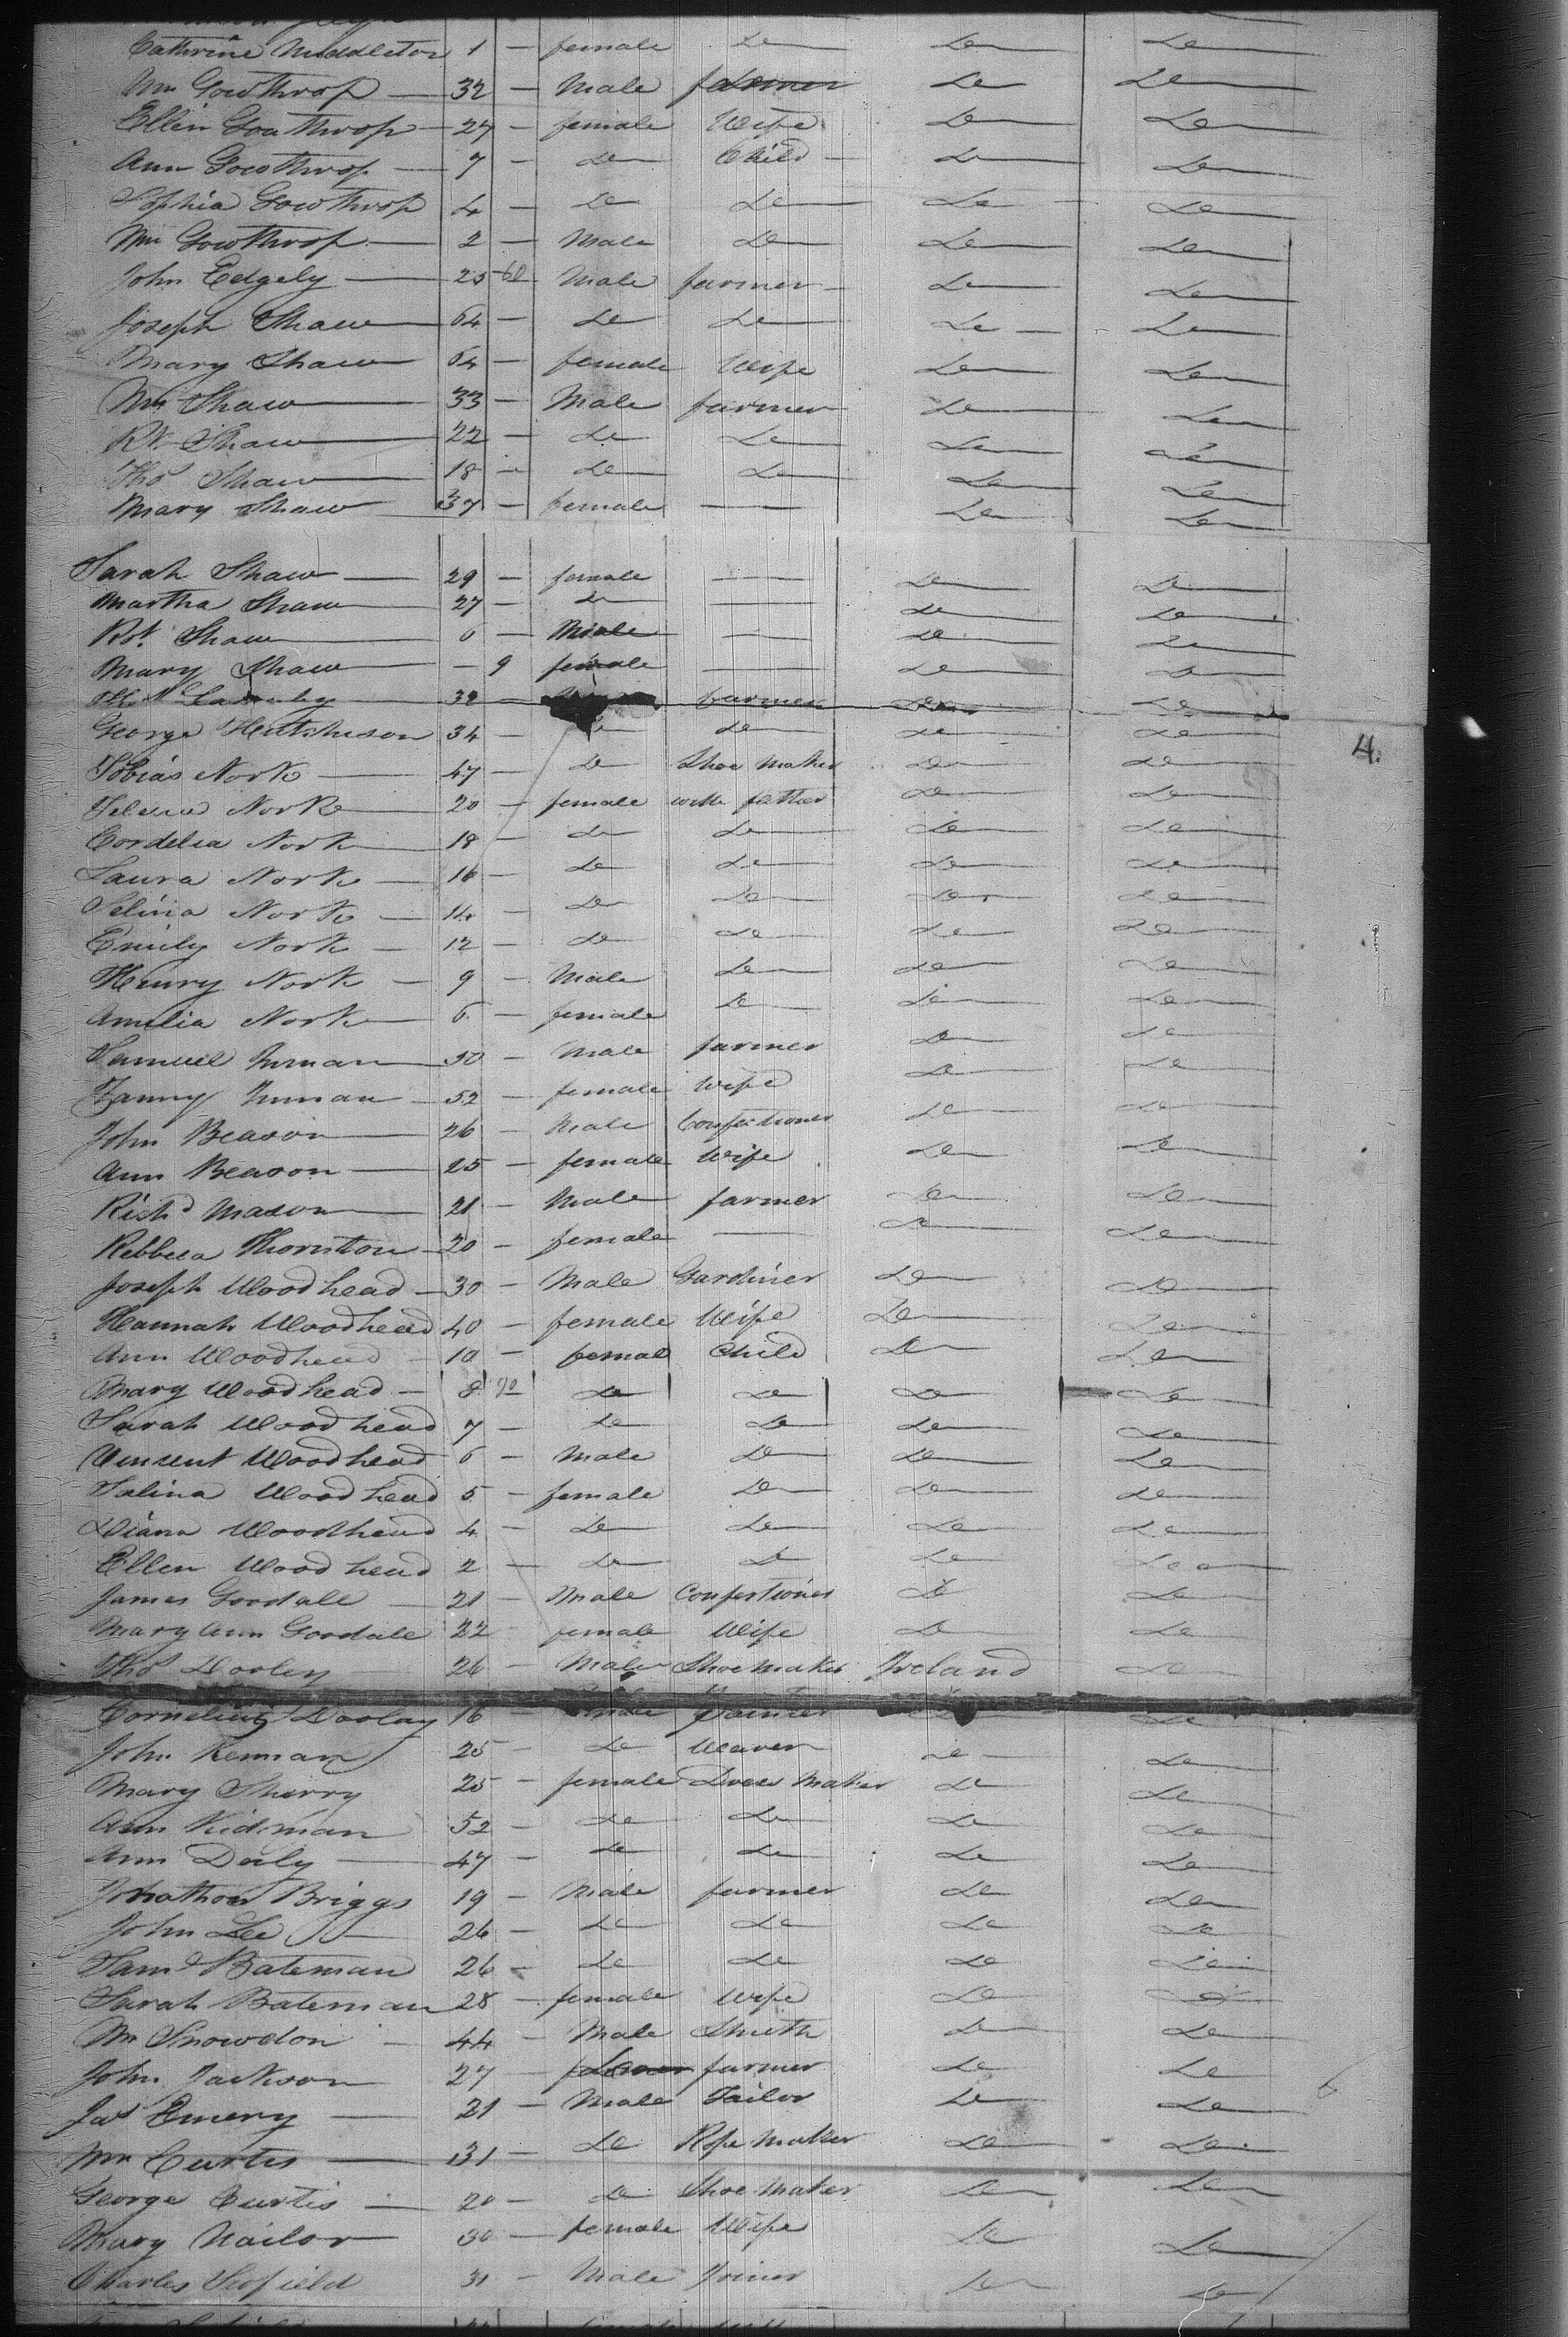 Cathrine Middleton 1 — female Do Do Do
Wm Gowthrop — 32 — Male farmer Do Do
Ellen Gowthrop — 27 — female Wife Do Do
Ann Gowthrop — 7 — Do Child — Do Do
Sophia Gowthrop 4 — Do Do Do Do
Wm Gowthrop — 2 — Male Do Do Do
John Edgely — 25 60 Male farmer — Do Do
Joseph Shaw 64 — Do Do Do Do
Mary Shaw 64 — female Wife Do Do
Wm Shaw 33 — Male farmer Do Do
Rt Shaw 22 — Do Do Do Do
Thos Shaw 18 — Do Do Do Do
Mary Shaw 37 — female — Do Do
Sarah Shaw — 29 — female — Do Do
Martha Shaw 27 — Do — Do Do
Rot. Shaw 6 — Male — Do Do
Mary Shaw — 9 female — Do Do
32 — farmer Do Do
George Hutchinson 34 — Do Do Do Do
4.
Tobias Nork — 47 — Do Shoe Maker Do Do
Nork 20 — female with father Do Do
Cordelia Nork 18 — Do Do Do Do
Laura Nork — 16 — Do Do Do Do
Selina Nork — 14 — Do Do Do Do
Emily Nork — 12 — Do Do Do Do
Henry Nork — 9 — Male Do Do Do
Amelia Nork — 6 — female Do Do Do
Samuel Inman 50 — Male farmer Do Do
Fanny Inman — 52 — female Wife Do Do
John Beason 26 — Male Confectioner Do Do
Ann Beason — 25 — female Wife Do Do
Richd Mason 21 — Male farmer Do Do
Rebbeca Thornton — 20 — female — Do Do
Joseph Woodhead — 30 — Male Gardiner Do Do
Hannah Woodhead 40 — female Wife Do Do
Ann Woodhead — 10 — femal Child Do Do
Mary Woodhead — 8 70 Do Do Do Do
Sarah Woodhead 7 — Do Do Do Do
Vincent Woodhead 6 — Male Do Do Do
Salina Woodhead 5 — female Do Do Do
Diana Woodhead 4 — Do Do Do Do
Ellen Woodhead 2 — Do Do Do Do
James Goodale — 21 — Male Confectioner Do Do
Mary Ann Goodale 22 female Wife Do Do
Thos Dooley 26 — Male Shoe maker Ireland Do
Cornelius Doolay 16 — Male Do Do
John Kennan 25 — Do Weaver Do Do
Mary Sherry 25 — female Dress Maker Do Do
Ann Kidman 52 — Do Do Do Do
Ann Daly — 47 — Do Do Do Do
Jonathon Briggs 19 — Male farmer Do Do
John Lee — 26 — Do Do Do Do
Saml Bateman 26 — Do Do Do Do
Sarah Bateman 28 — female Wife Do Do
Wm Snowdon — 44 — Male Smith Do Do
John Jackson 27 — farmer Do Do
Jas Emery — 21 — Male Tailor Do Do
Wm Curtis — 31 — Do Rope Maker Do Do
George Curtis — 20 — Do Shoe Maker Do Do
Mary Nailor 30 — female Wife Do Do
Charles Scofield 31 — Male Joiner Do Do